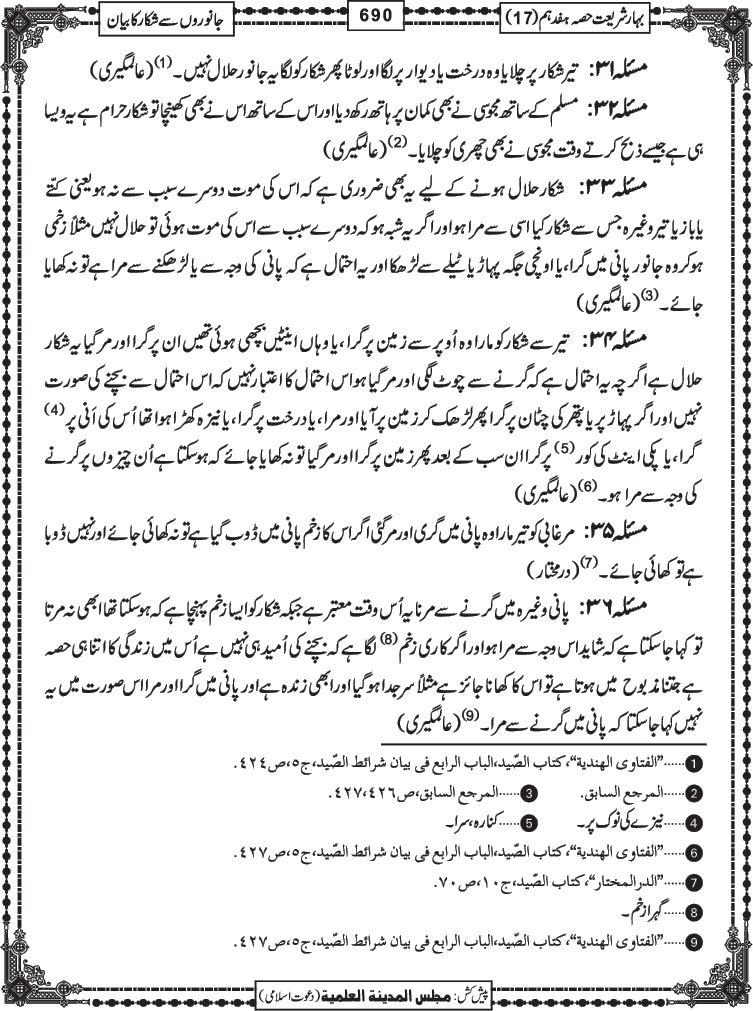 بہار شریعت حصہ ہفدہم (17)
690
جانوروں سے شکار کا بیان
مسئلہ ۳۱: تیر شکار پر چلایا وہ درخت یا دیوار پر لگا اور لوٹا پھر شکار کو لگا یہ جانور حلال نہیں۔ (1) (عالمگیری)
مسئلہ ۳۲: مسلم کے ساتھ مجوسی نے بھی کمان پر ہاتھ رکھ دیا اور اس کے ساتھ اس نے بھی کھینچا تو شکار حرام ہے یہ ویسا
ہی ہے جیسے ذبح کرتے وقت مجوسی نے بھی چھری کو چلایا۔ (2) (عالمگیری)
مسئلہ ۳۳: شکار حلال ہونے کے لیے یہ بھی ضروری ہے کہ اس کی موت دوسرے سبب سے نہ ہو یعنی کتّے
یا باز یا تیر وغیرہ جس سے شکار کیا اسی سے مرا ہو اور اگر یہ شبہ ہو کہ دوسرے سبب سے اس کی موت ہوئی تو حلال نہیں مثلاً زخمی
ہو کر وہ جانور پانی میں گرا، یا اونچی جگہ پہاڑ یا ٹیلے سے لڑھکا اور یہ احتمال ہے کہ پانی کی وجہ سے یا لڑھکنے سے مرا ہے تو نہ کھایا
جائے۔ (3) (عالمگیری)
مسئلہ ۳۴: تیر سے شکار کو مارا وہ اُوپر سے زمین پر گرا، یا وہاں اینٹیں بچھی ہوئی تھیں ان پر گرا اور مر گیا یہ شکار
حلال ہے اگرچہ یہ احتمال ہے کہ گرنے سے چوٹ لگی اور مر گیا ہو اس احتمال کا اعتبار نہیں کہ اس احتمال سے بچنے کی صورت
نہیں اور اگر پہاڑ پر یا پتھر کی چٹان پر گرا پھر لڑھک کر زمین پر آیا اور مرا، یا درخت پر گرا، یا نیزہ کھڑا ہوا تھا اُس کی اَنی پر (4)
گرا، یا پکی اینٹ کی کور (5) پر گرا ان سب کے بعد پھر زمین پر گرا اور مر گیا تو نہ کھایا جائے کہ ہوسکتا ہے اُن چیزوں پر گرنے
کی وجہ سے مرا ہو۔ (6) (عالمگیری)
مسئلہ ۳۵: مرغابی کو تیر مارا وہ پانی میں گری اور مر گئی اگر اس کا زخم پانی میں ڈوب گیا ہے تو نہ کھائی جائے اور نہیں ڈوبا
ہے تو کھائی جائے۔ (7) (درمختار)
مسئلہ ۳۶: پانی وغیرہ میں گرنے سے مرنا یہ اُس وقت معتبر ہے جبکہ شکار کو ایسا زخم پہنچا ہے کہ ہوسکتا تھا ابھی نہ مرتا
تو کہا جاسکتا ہے کہ شاید اس وجہ سے مرا ہو اور اگر کاری زخم (8) لگا ہے کہ بچنے کی اُمید ہی نہیں ہے اُس میں زندگی کا اتنا ہی حصہ
ہے جتنا مذبوح میں ہوتا ہے تو اس کا کھانا جائز ہے مثلاً سر جدا ہوگیا اور ابھی زندہ ہے اور پانی میں گرا اور مرا اس صورت میں یہ
نہیں کہا جاسکتا کہ پانی میں گرنے سے مرا۔ (9) (عالمگیری)
1 ......"الفتاوى الهندية"، كتاب الصّيد، الباب الرابع فى بيان شرائط الصّيد، ج٥، ص٤٢٤.
2 ......المرجع السابق. 3 ......المرجع السابق، ص٤٢٦،٤٢٧.
4 ......نیزے کی نوک پر۔ 5 ......کنارہ، سرا۔
6 ......"الفتاوى الهندية"، كتاب الصّيد، الباب الرابع فى بيان شرائط الصّيد، ج٥، ص٤٢٧.
7 ......"الدرالمختار"، كتاب الصّيد، ج١٠، ص٧٠.
8 ......گہرا زخم۔
9 ......"الفتاوى الهندية"، كتاب الصّيد، الباب الرابع فى بيان شرائط الصّيد، ج٥، ص٤٢٧.
پیش کش: مجلس المدينة العلمية (دعوت اسلامی)